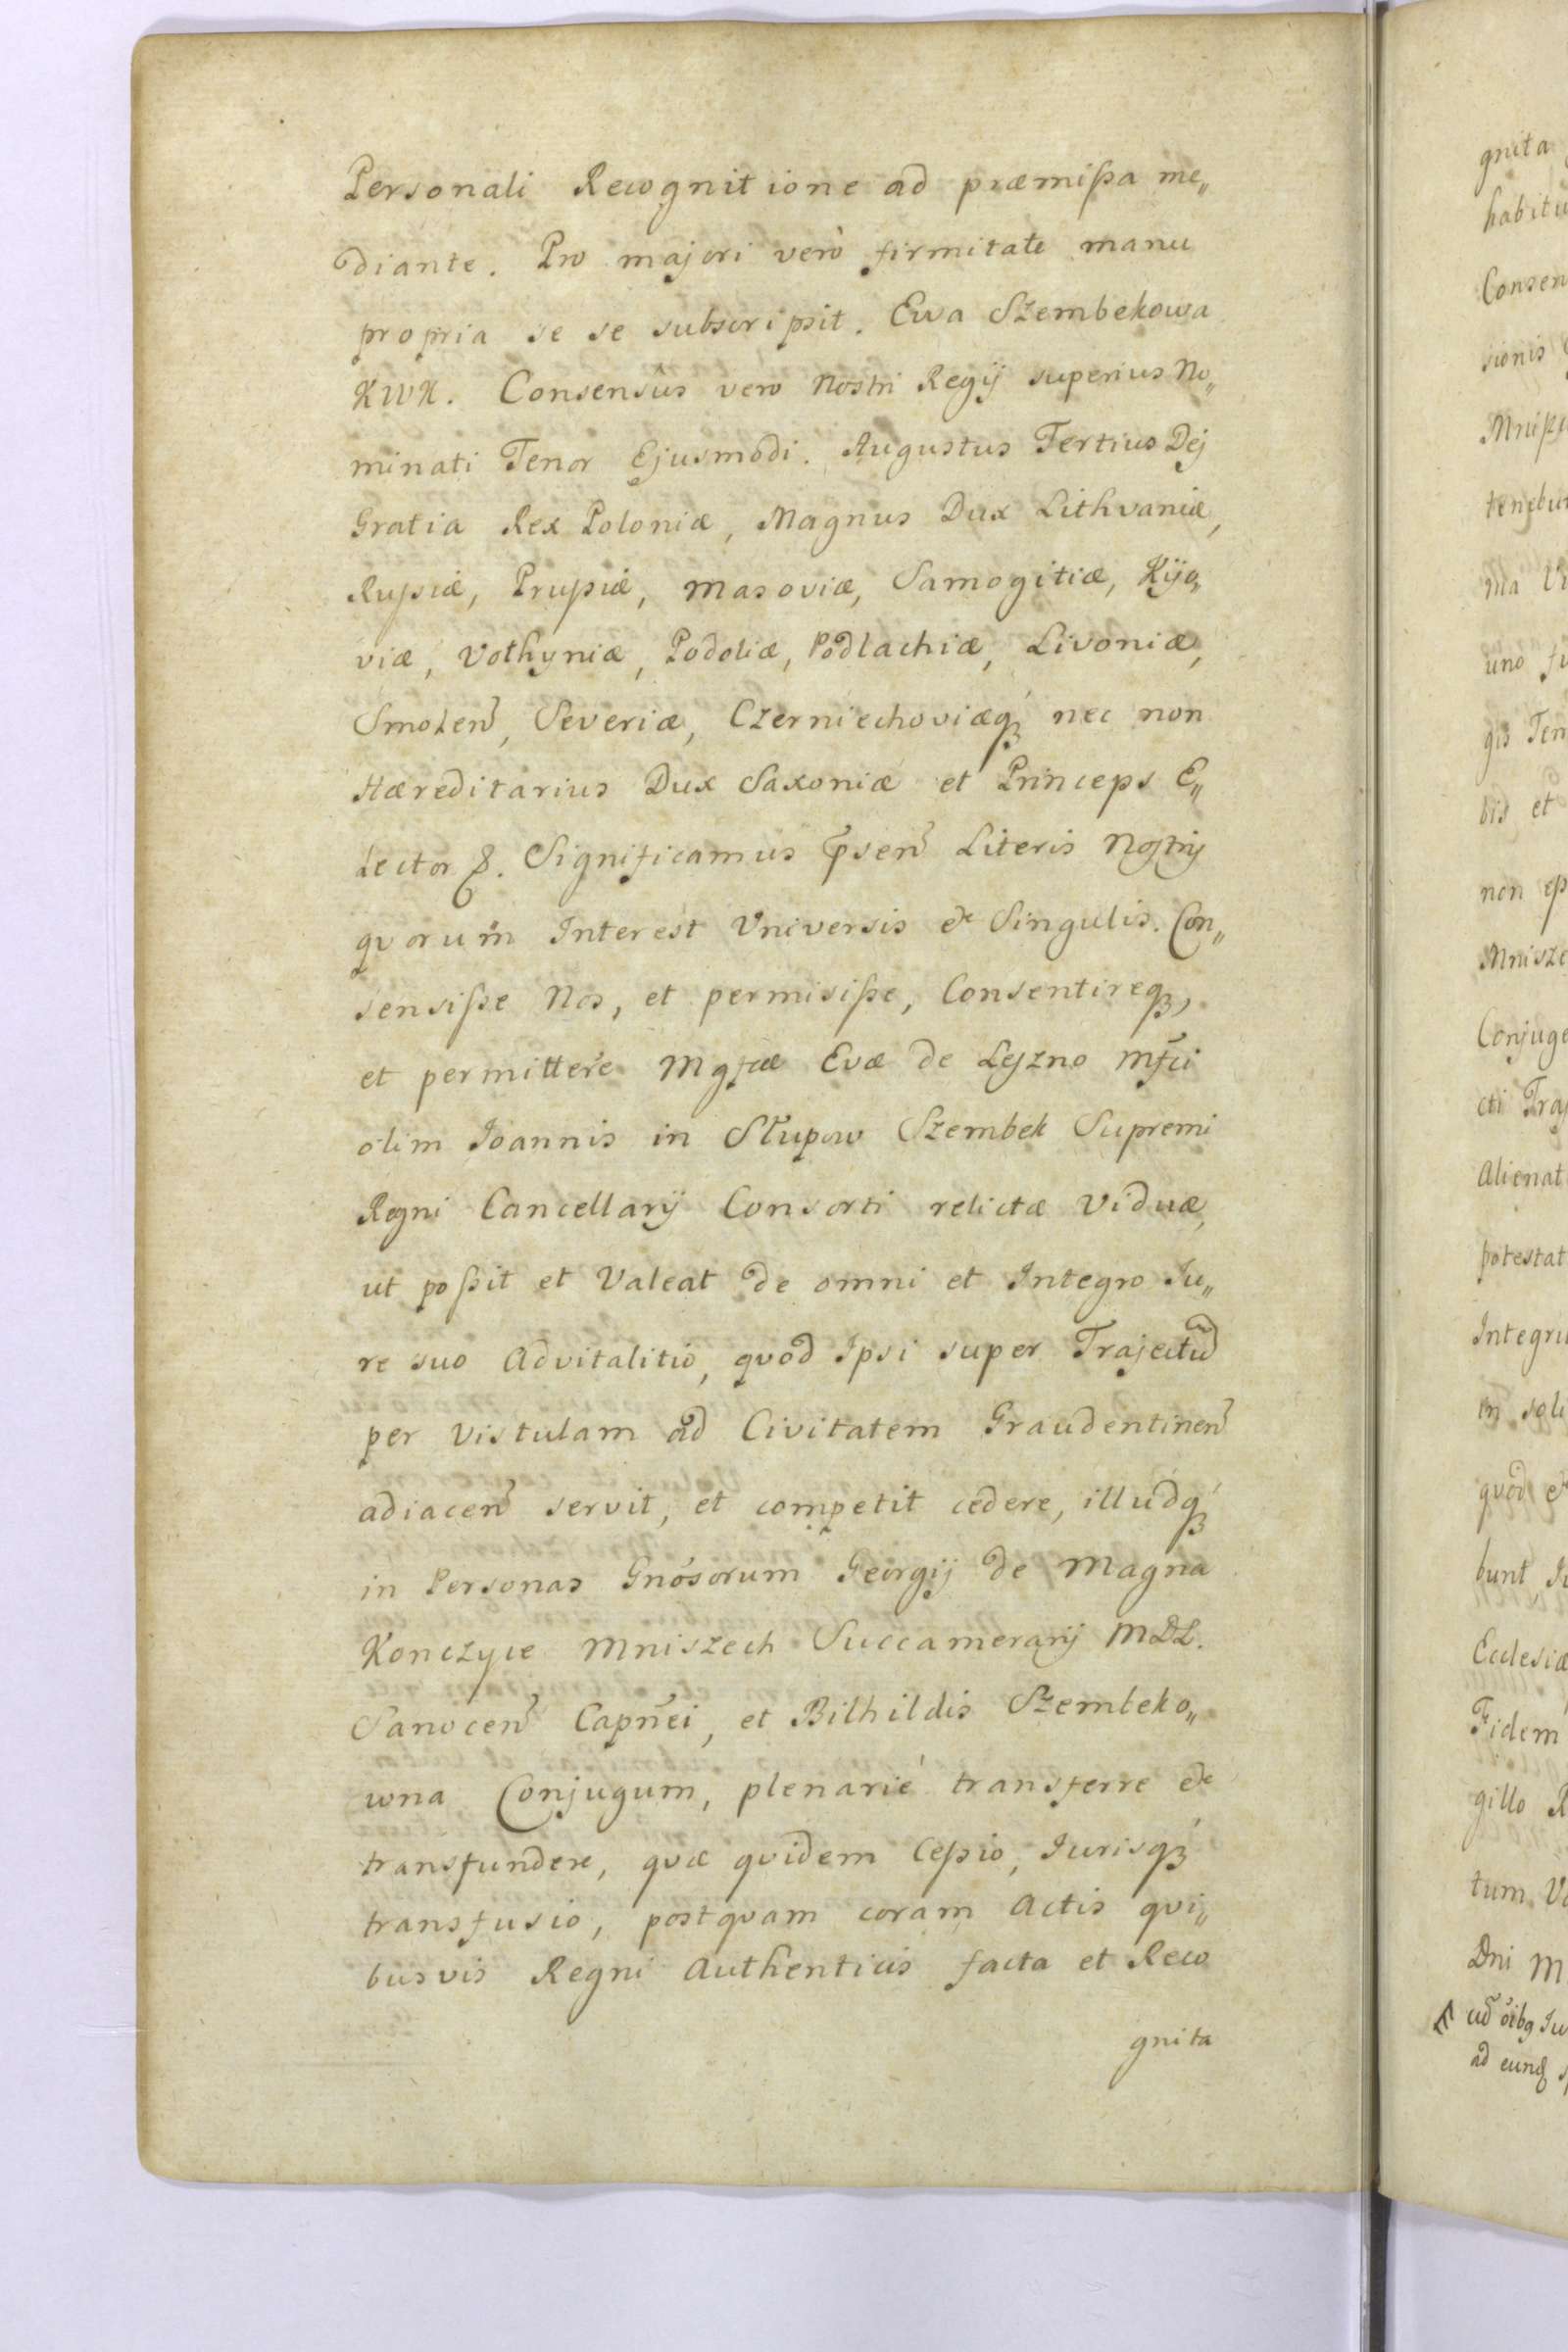 Personali Recognitione ad præmißa me„
diante. Pro majori verò firmitate manu
propria se se subscripsit. Ewa Szembekowa
KWK. Consensûs vero Nostri Regij superius No„
minati Tenor Ejusmodi. Augustus Tertius Dej
Gratia Rex Poloniæ, Magnus Dux Lithvaniæ,
Rußiæ, Prußiæ, Masoviæ, Samogitiæ, Kijo„
viæ, Volhyniæ, Podoliæ, Podlachiæ, Livoniæ,
Smolen̄, Severiæ, Czerniechoviæq́ꝫ nec non
Hæreditarius Dux Saxoniæ et Princeps E„
lector &. Significamus p̄sen̄ Literis Nostrij
quorum Interest Vniversis & Singulis. Con„
sensiße Nos, et permisiße, Consentireqꝫ,
et permittere Mgfcæ Evæ de Leszno Mf̄ci
olim Joannis in Słupow Szembek Supremi
Regni Cancellarij Consorti relictæ Viduæ,
ut poßit et Valeat de omni et Integro Ju„
re suo Advitalitio, quod Ipsi super Trajectū
per Vistulam ad Civitatem Graudentinen̄
adiacen̄ servit, et competit cedere, illudq́ꝫ
in Personas Gnósorum Georgij de Magna
Konczyce Mniszech Succamerarij MDL.
Sanocen̄ Capn̄ei, et Bilhildis Szembeko„
wna Conjugum, plenarié transferre &
transfundere, quæ quidem Ceßio, Jurisq́ꝫ
transfusio, postquam coram Actis qui„
busvis Regni Authenticis facta et Reco
gnita
gnita
habitu
Consen
sionis
tenebu
ma
uno
gis Ten
bis et
non
Mnisze
Conjuge
cti Traj
Alienat
potestat
Integru
in soli
quod &
bunt Ju
Ecclesiæ
Fidem
gillo R
tum V
Dni M